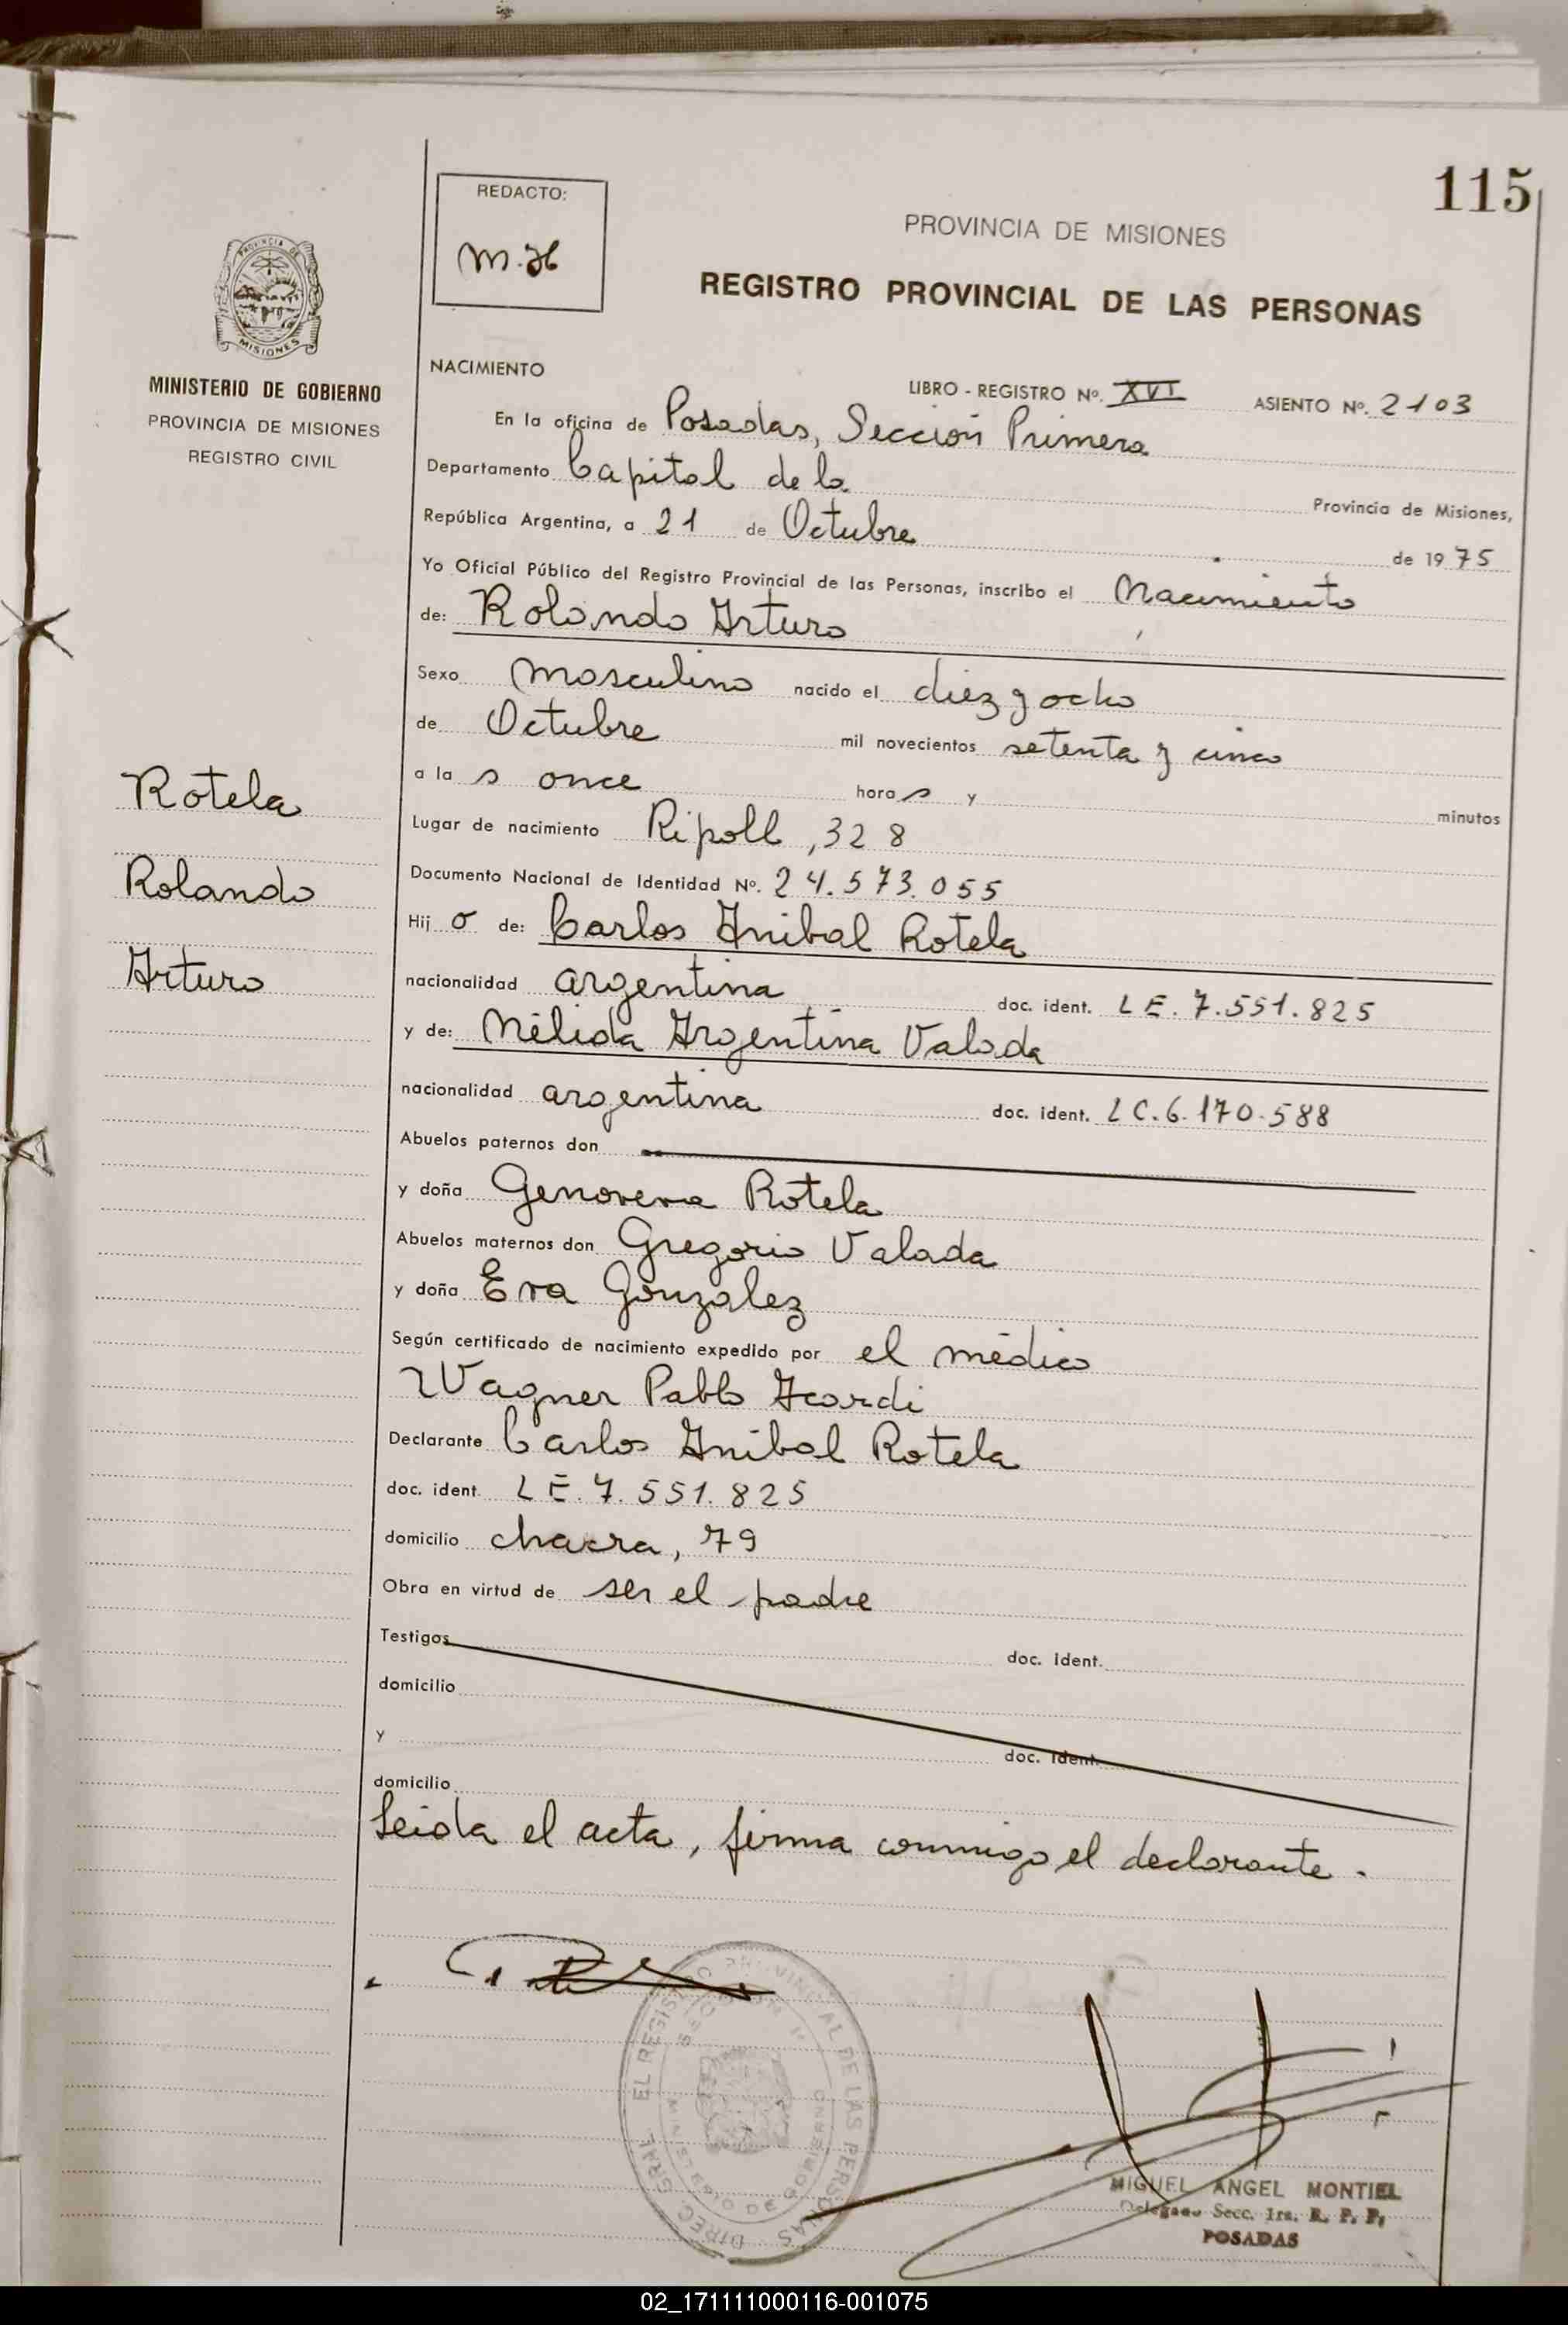 115
REDACTO:
M.H
PROVINCIA DE MISIONES
REGISTRO PROVINCIAL DE LAS PERSONAS
PROVINCIA DE
MISIONES
MINISTERIO DE GOBIERNO
PROVINCIA DE MISIONES
REGISTRO CIVIL
Rotela
Rolando
Arturo
NACIMIENTO
LIBRO - REGISTRO Nº. XVI ASIENTO Nº. 2103
En la oficina de Posadas, Sección Primera
Departamento Capital de la Provincia de Misiones,
República Argentina, a 21 de Octubre de 1975
Yo Oficial Público del Registro Provincial de las Personas, inscribo el Nacimiento
de: Rolando Arturo
Sexo masculino nacido el diez y ocho
de Octubre mil novecientos setenta y cinco
a la s once hora s y minutos
Lugar de nacimiento Ripoll, 328
Documento Nacional de Identidad Nº. 24.573.055
Hij o de: Carlos Anibal Rotela
nacionalidad argentina doc. ident. LE. 7.551.825
y de: Nélida Argentina Valada
nacionalidad argentina doc. ident. LC. 6.170.588
Abuelos paternos don
y doña Genoveva Rotela
Abuelos maternos don Gregorio Valada
y doña Eva Gonzalez
Según certificado de nacimiento expedido por el médico
Wagner Pablo Acardi
Declarante Carlos Anibal Rotela
doc. ident. LE. 7.551.825
domicilio chacra, 79
Obra en virtud de ser el padre
Testigos doc. ident.
domicilio
y doc. ident.
domicilio
Leida el acta, firma conmigo el declarante.
DIREC. GRAL. EL REGISTRO PROVINCIAL DE LAS PERSONAS
MIGUEL ANGEL MONTIEL
Delegado Secc. 1ra. R. P. P.
POSADAS
02_171111000116-001075